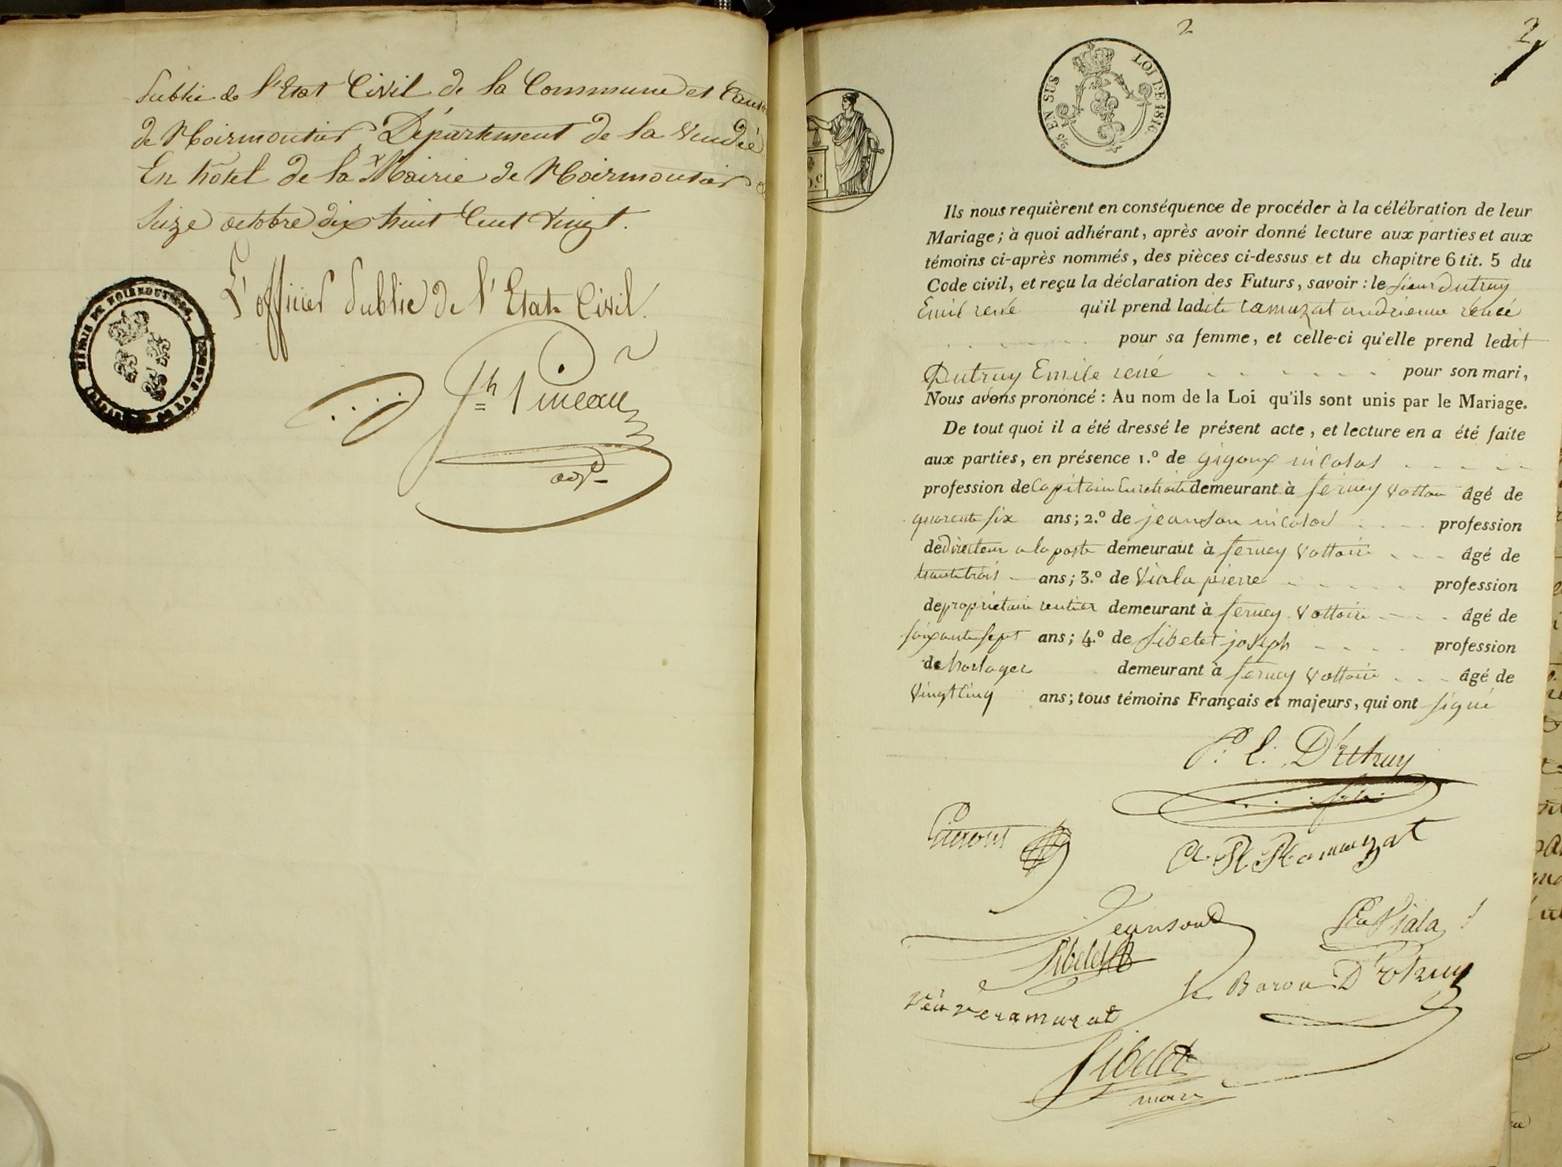 Public de l'Etat Civil de la Commune et Canton
de Noirmoutier, Département de la Vendée
En hôtel de la Mairie de Noirmoutier
Seize octobre dix huit Cent Vingt.
L'officier Public de l'Etat Civil.
Jh Pineau
adjt
MAIRIE DE NOIRMOUTIER
2
2
EN SUS
LOI DE 1816
Ils nous requièrent en conséquence de procéder à la célébration de leur
Mariage; à quoi adhérant, après avoir donné lecture aux parties et aux
témoins ci-après nommés, des pièces ci-dessus et du chapitre 6 tit. 5 du
Code civil, et reçu la déclaration des Futurs, savoir : le sieur Dutruy
Emile réné qu'il prend ladite ramuzat andrienne rénée
pour sa femme, et celle-ci qu'elle prend ledit
Dutruy Emile réné pour son mari,
Nous avons prononcé : Au nom de la Loi qu'ils sont unis par le Mariage.
De tout quoi il a été dressé le présent acte, et lecture en a été faite
aux parties, en présence 1.º de gigoux nicolas
profession de Capitain En retraite demeurant à ferney Voltaire âgé de
quarente six ans; 2.º de jeanson nicolas profession
de directeur a la poste demeurant à ferney Voltaire âgé de
trante trois ans; 3.º de Viala pierre profession
de propriétaire rentier demeurant à ferney Voltaire âgé de
soixante sept ans; 4.º de sibelet joseph profession
de horloger demeurant à ferney Voltaire âgé de
Vingt cinq ans; tous témoins Français et majeurs, qui ont signé
D'Utruy
A. R. Ramuzat
Jeanson
Viala
Sibelet
le Baron D'Utruy
Veuve ramuzat
Sibelet
maire